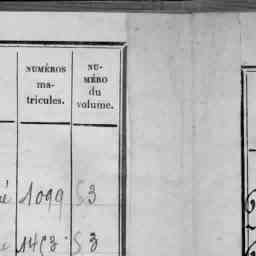 NUMÉROS
ma-
tricules.
NU-
MÉRO
du
volume.
1099 53
53